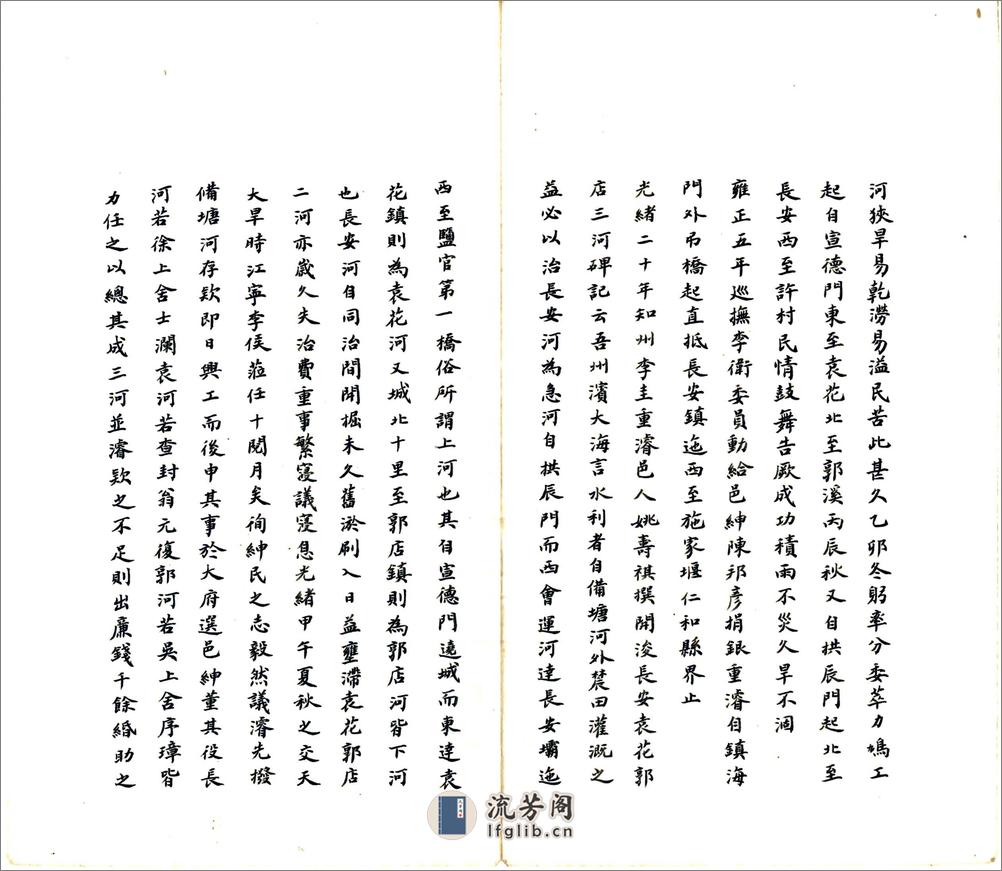 河狹旱易乾澇易溢民苦此甚久乙卯冬躬率分委萃力鳩工
起自宣德門東至袁花北至郭溪丙辰秋又自拱辰門起北至
長安西至許村民情鼓舞告厥成功積雨不災久旱不涸
雍正五年巡撫李衛委員動給邑紳陳邦彥捐銀重濬自鎮海
門外吊橋起直抵長安鎮迤西至施家堰仁和縣界止
光緒二十年知州李圭重濬邑人姚壽祺撰開浚長安袁花郭
店三河碑記云吾州濱大海言水利者自備塘河外農田灌溉之
益必以治長安河為急河自拱辰門而西會運河達長安壩迤
西至鹽官第一橋俗所謂上河也其自宣德門遶城而東達袁
花鎮則為袁花河又城北十里至郭店鎮則為郭店河皆下河
也長安河自同治間開掘未久舊淤刷入日益壅滯袁花郭店
二河亦歲久失治費重事繁寖議寖息光緒甲午夏秋之交天
大旱時江寧李侯蒞任十閱月矣徇紳民之志毅然議濬先撥
備塘河存款即日興工而後申其事於大府選邑紳董其役長
河若徐上舍士瀾袁河若查封翁元復郭河若吳上舍序璋皆
力任之以總其成三河並濬款之不足則出廉錢千餘緡助之
流芳阁
lfglib.cn